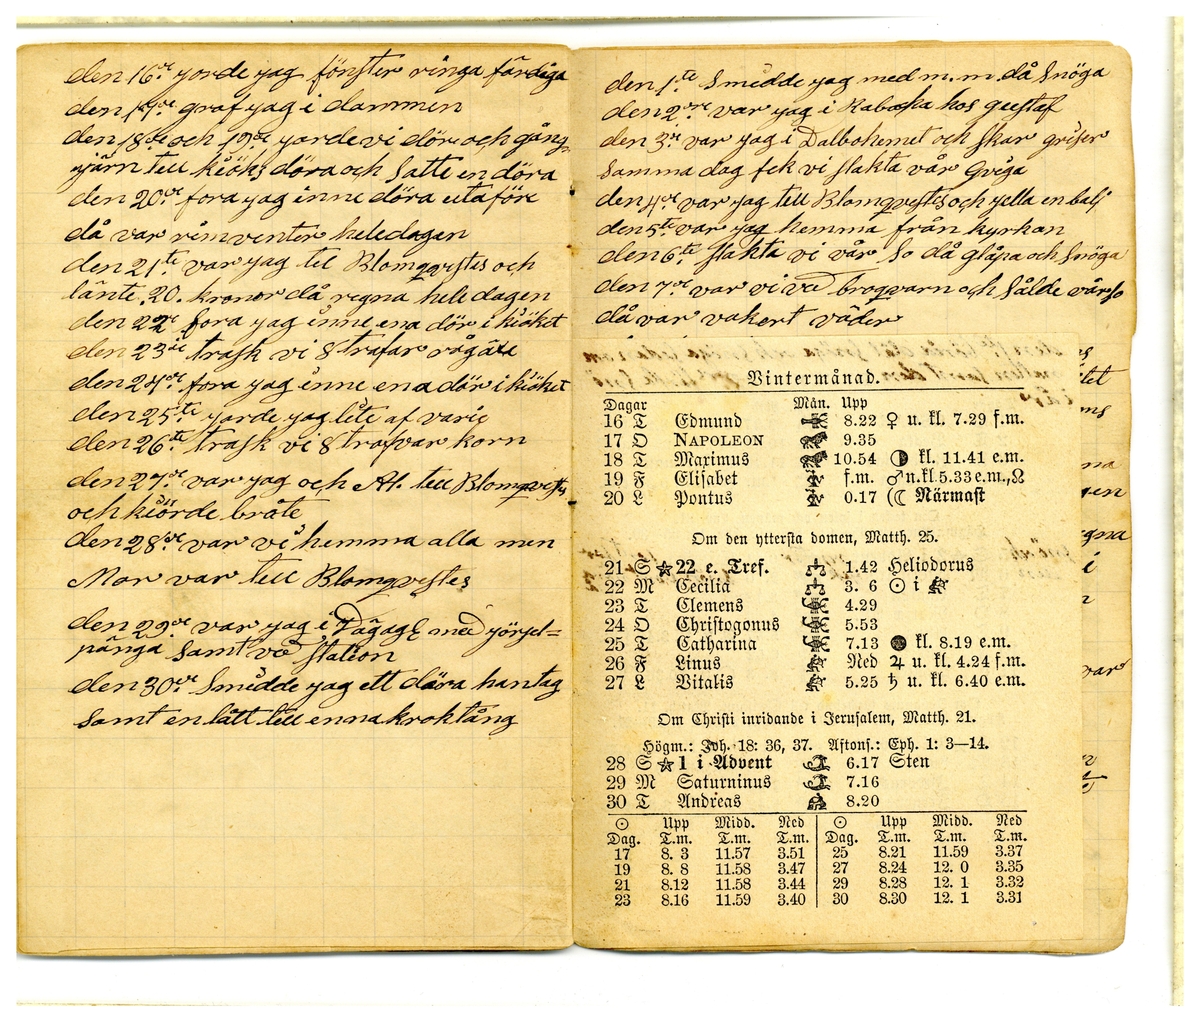 den 16de yorde yag fönster ringa färdiga
den 17de graf yag i dammen
den 18de och 19de yarde vi dör och gång
yjärn tell kiöks döra och satte en döra
den 20de fora yag inne döra utaför
då var rimventer heledagen
den 21te var yag tel Blomqvistes och
länte 20. kronor då regna hele dagen
den 22e fora yag inne ena dör i kiöket
den 23ie trask vi 8 trafar rågäxa
den 24de fora yag inne ena dör i kiöket
den 25te yarde yag lite af varie
den 26te trask vi 8 trafvar korn
den 27de var yag och Al. tell Blomqvistes
och kiörde bråte
den 28de var vi hemma alla men
Mor var tell Blomqvistes
den 29de var yag i med yörsel=
pånga samt ved station
den 30de Smidde yag ett dära hantag
samt en lått tell enna kroktång
den 1te Smidde yag med m. m. då Snöga
den 2re var yag i Rabacka hos gustaf
den 3ie var yag i Dalbohemet och skar griser
samma dag fek vi slakta vår Qviga
den 4de var yag tell Blomqvistes och yella en balj
den 5te var yag hemma från kyrkan
den 6te slakta vi vår So då glåpa och Snöga
den 7de var vi ved broqvarn och Sålde vår so
då var vakert väder
Vintermånad.
Dagar Mån. Upp
16 T Edmund 8.22 ♀ u. kl. 7.29 f.m.
17 O NAPOLEON 9.35
18 T Maximus 10.54 ◑ kl. 11.41 e.m.
19 F Elisabet f.m. ♂ n. kl. 5.33 e.m., ☊
20 L Pontus 0.17 (☾ Närmast
Om den yttersta domen, Matth. 25.
21 S ☆ 22 e. Tref. ♎ 1.42 Heliodorus
22 M Cecilia ♎ 3. 6 ☉ i ♐
23 T Clemens 4.29
24 O Chrisogonus 5.53
25 T Catharina 7.13 ● kl. 8.19 e.m.
26 F Linus Ned ♃ u. kl. 4.24 f.m.
27 L Vitalis 5.25 ♄ u. kl. 6.40 e.m.
Om Christi inridande i Jerusalem, Matth. 21.
Högm.: Joh. 18: 36, 37. Aftons.: Eph. 1: 3—14.
28 S ☆ 1 i Advent 6.17 Sten
29 M Saturninus 7.16
30 T Andreas 8.20
☉ Upp Midd. Ned ☉ Upp Midd. Ned
Dag. T.m. T.m. T.m. Dag. T.m. T.m. T.m.
17 8. 3 11.57 3.51 25 8.21 11.59 3.37
19 8. 8 11.58 3.47 27 8.24 12. 0 3.35
21 8.12 11.58 3.44 29 8.28 12. 1 3.32
23 8.16 11.59 3.40 30 8.30 12. 1 3.31